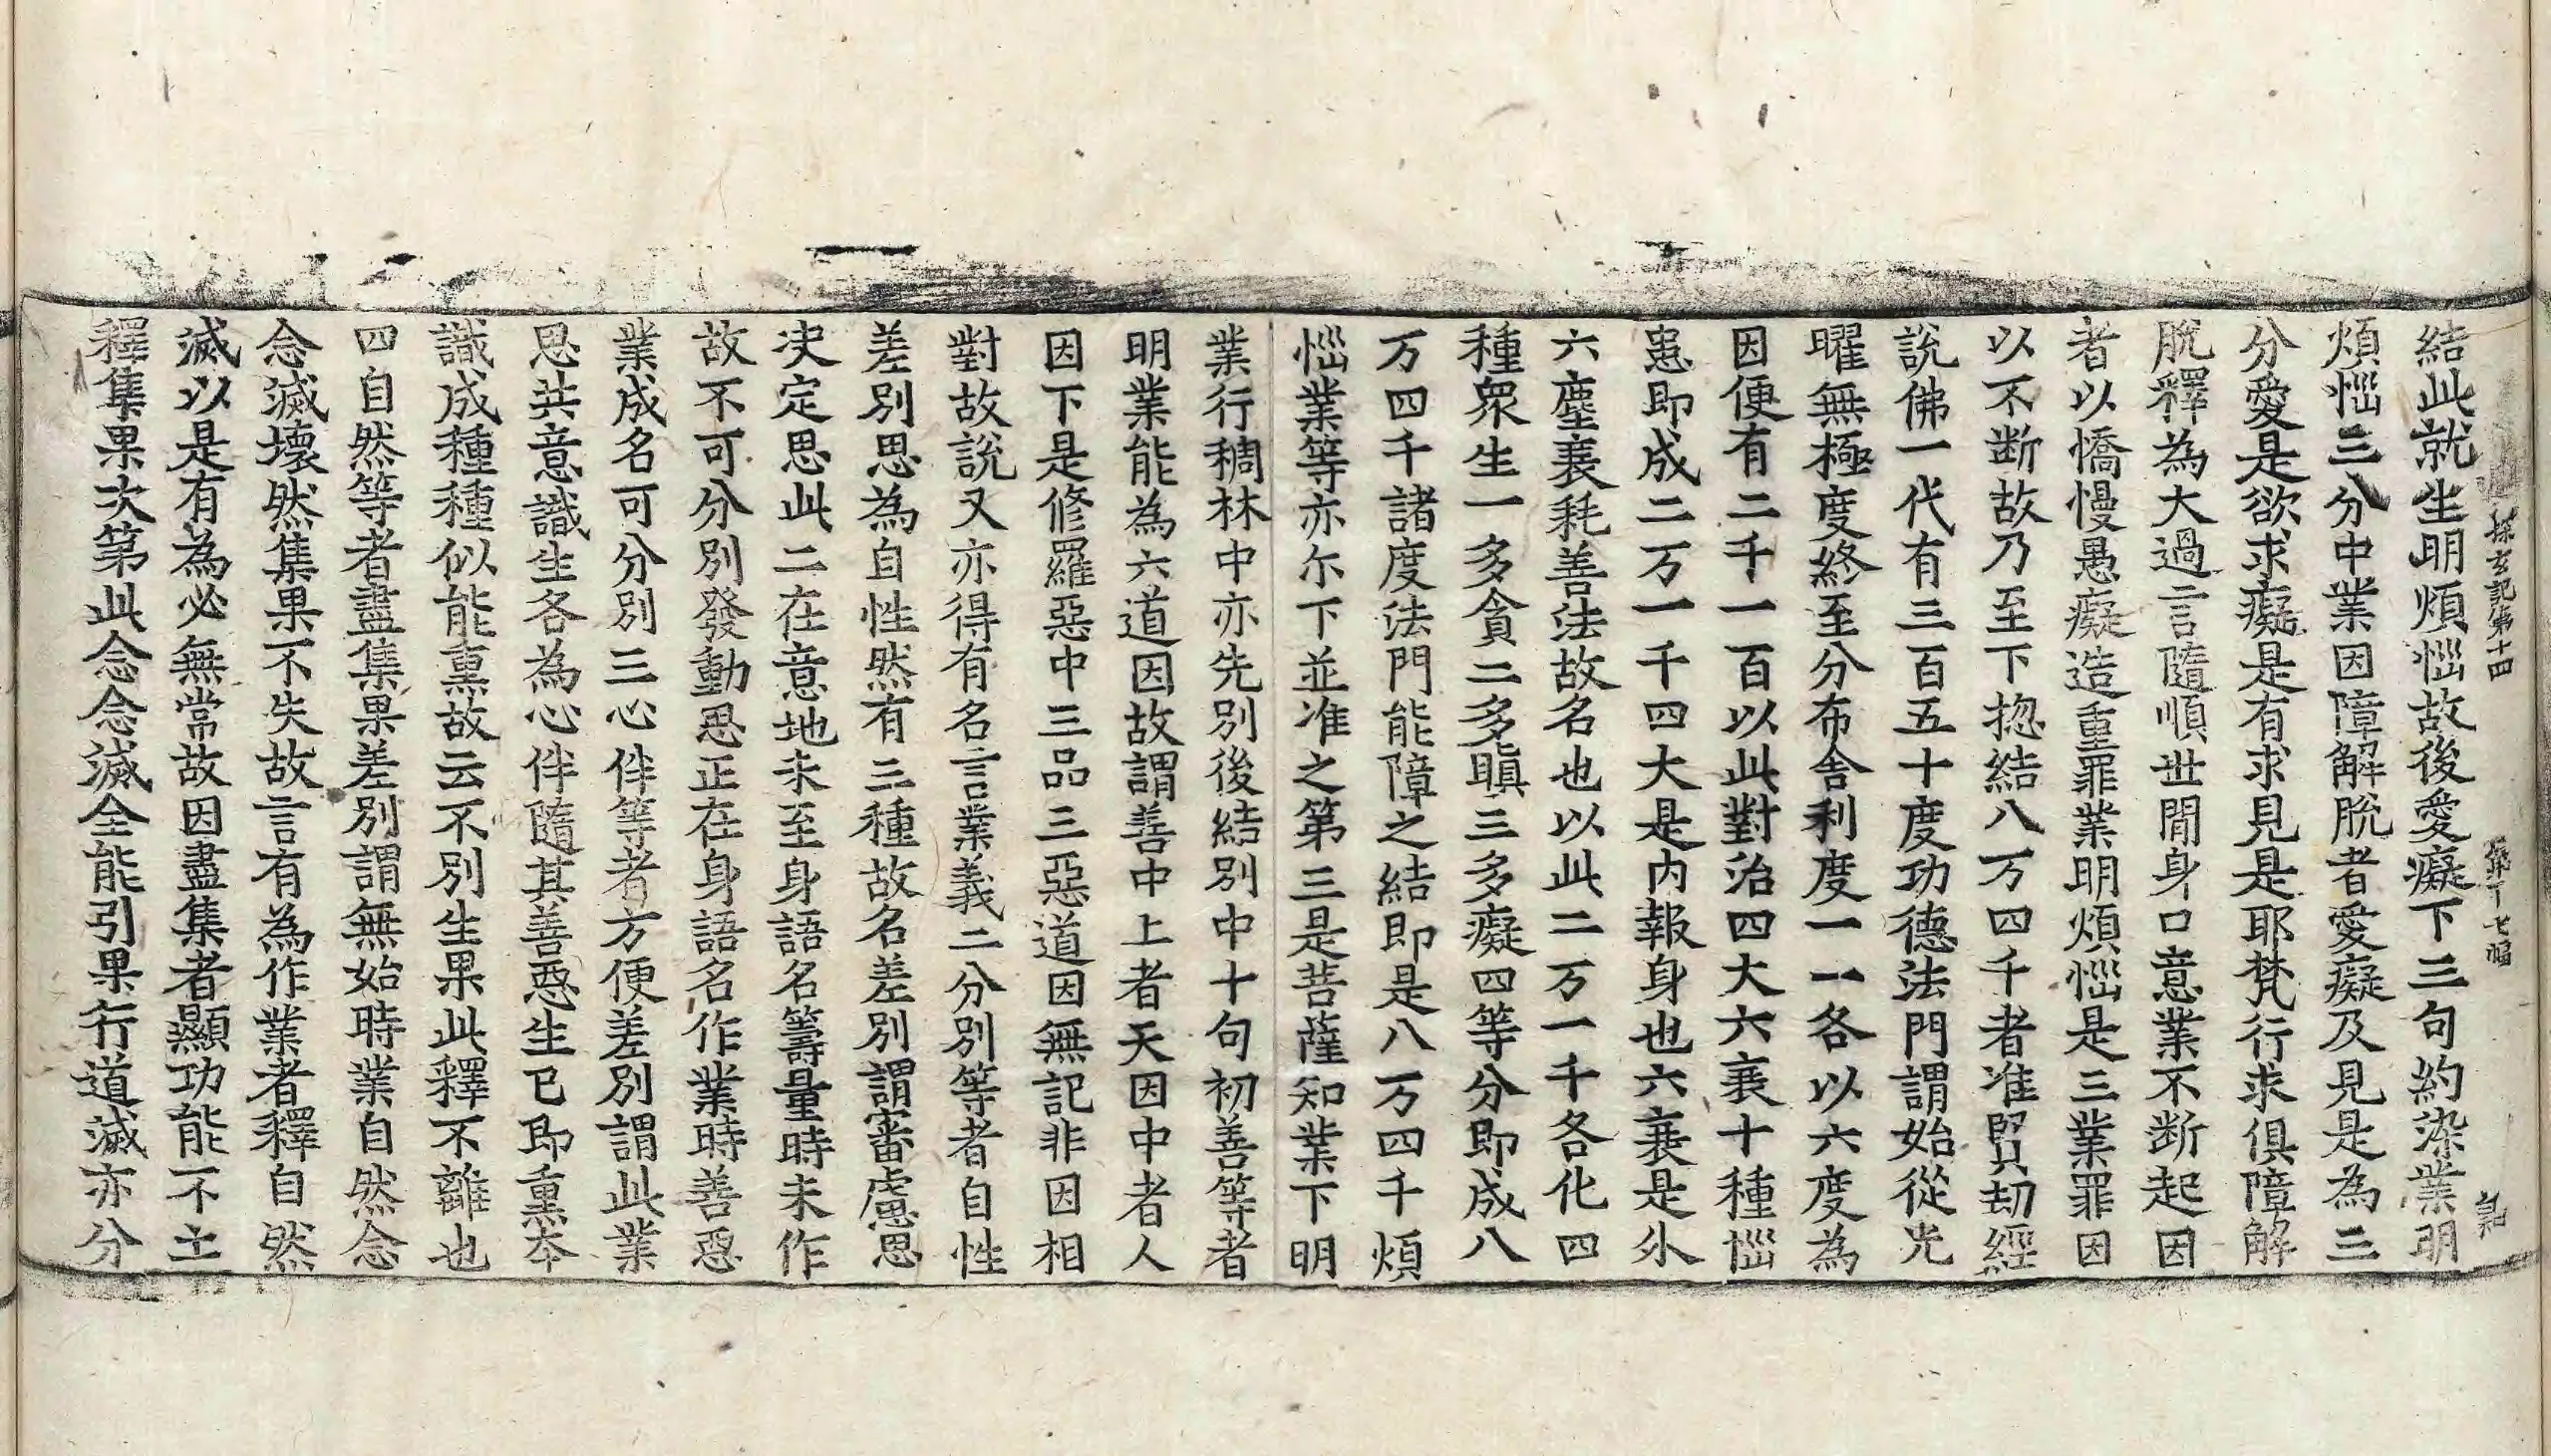 探玄記第十四
結此就生明煩惱故後愛癡下三句約染業明
煩惱三分中業因障解脫者愛癡及見是為三
分愛是欲求癡是有求見是耶梵行求俱障解
脫釋為大過言隨順世間身口意業不断起因
者以憍慢愚癡造重罪業明煩惱是三業罪因
以不断故乃至下揔結八万四千者准賢劫經
說佛一代有三百五十度功德法門謂始從光
曜無極度終至分布舍利度一一各以六度為
因便有二千一百以此對治四大六衰十種惱
患即成二万一千四大是内報身也六衰是外
六塵衰耗善法故名也以此二万一千各化四
種衆生一多貪二多瞋三多癡四等分即成八
万四千諸度法門能障之結即是八万四千煩
惱業等亦尒下並准之第三是菩薩知業下明
業行稠林中亦先別後結別中十句初善等者
明業能為六道因故謂善中上者天因中者人
因下是修羅惡中三品三惡道因無記非因相
對故說又亦得有名言業義二分別等者自性
差別思為自性然有三種故名差別謂審慮思
决定思此二在意地未至身語名籌量時未作
故不可分別發動思正在身語名作業時善惡
業成名可分別三心伴等者方便差別謂此業
思共意識生各為心伴隨其善惡生已即熏夲
識成種種似能熏故云不別生果此釋不離也
四自然等者盡集果差別謂無始時業自然念
念滅壞然集果不失故言有為作業者釋自然
滅以是有為必無常故因盡集者顯功能不亡
釋集果次第此念念滅全能引果行道滅亦分